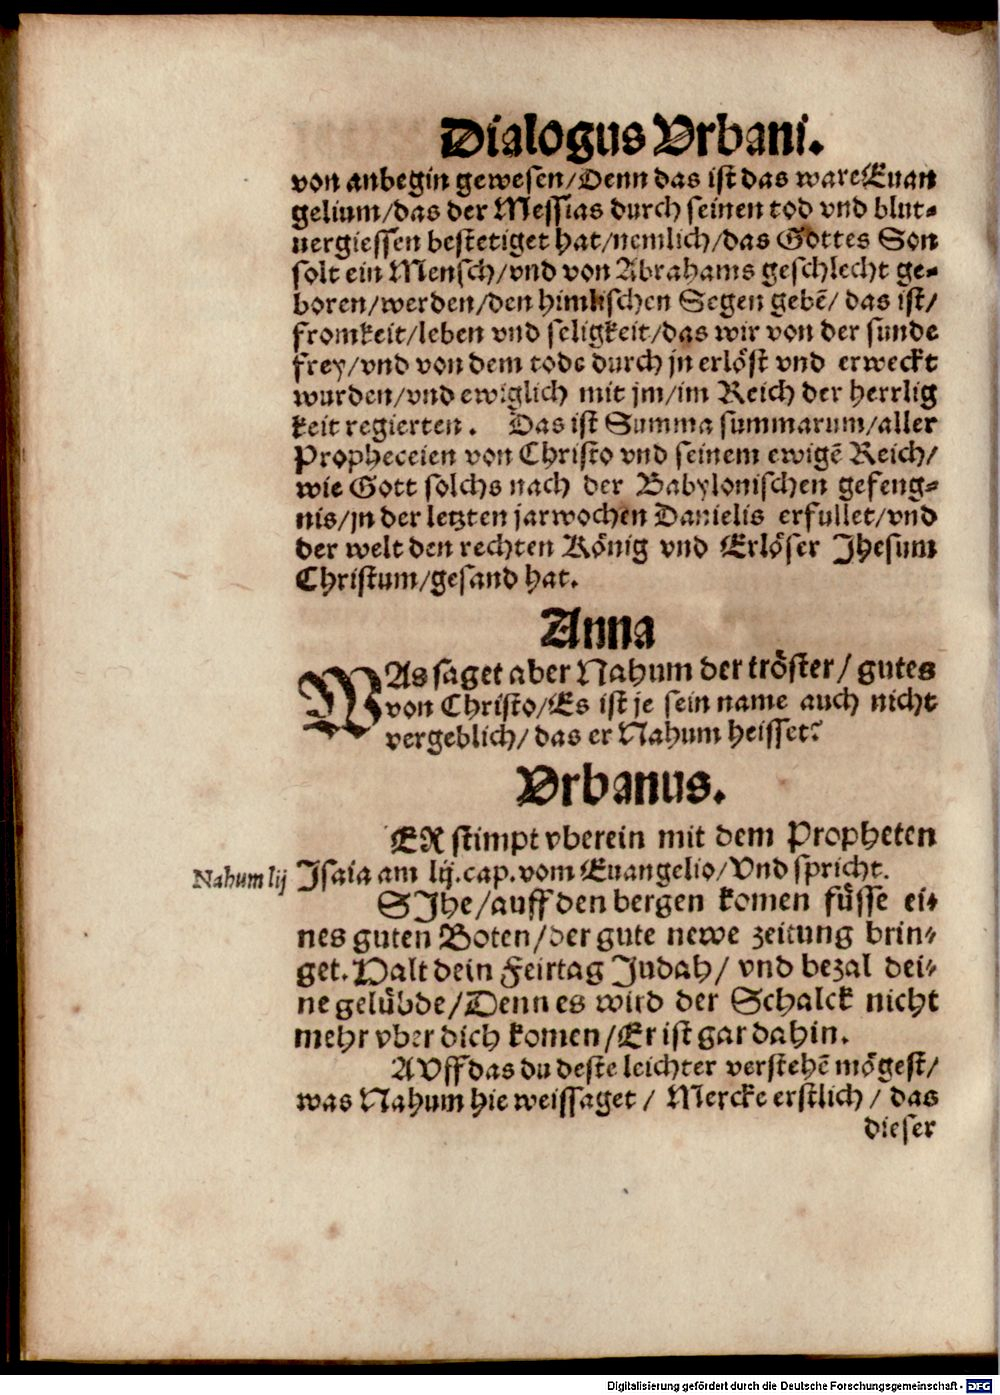 Dialogus Vrbani.
von anbegin gewesen/Denn das ist das ware Euan
gelium/das der Messias durch seinen tod vnd blut-
uergiessen bestetiget hat/nemlich/das Gottes Son
solt ein Mensch/vnd von Abrahams geschlecht ge-
boren/werden/den himlischen Segen gebē/ das ist/
fromkeit/leben vnd seligkeit/das wir von der sunde
frey/vnd von dem tode durch jn erlöst vnd erweckt
wurden/vnd ewiglich mit jm/im Reich der herrlig
keit regierten. Das ist Summa summarum/aller
Propheceien von Christo vnd seinem ewigē Reich/
wie Gott solchs nach der Babylonischen gefeng-
nis/jn der letzten jarwochen Danielis erfullet/vnd
der welt den rechten König vnd Erlöser Jhesum
Christum/gesand hat.
Anna
WAs saget aber Nahum der tröster/ gutes
von Christo/Es ist je sein name auch nicht
vergeblich/ das er Nahum heisset?
Vrbanus.
ER stimpt vberein mit dem Propheten
Nahum lij Jsaia am lij.cap.vom Euangelio/Vnd spricht.
SJhe/auff den bergen komen füsse ei-
nes guten Boten/der gute newe zeitung brin-
get. Halt dein Feirtag Judah/ vnd bezal dei-
ne gelübde/Denn es wird der Schalck nicht
mehr vber dich komen/Er ist gar dahin.
AVff das du deste leichter verstehē mögest/
was Nahum hie weissaget / Mercke erstlich / das
dieser
Digitalisierung gefördert durch die Deutsche Forschungsgemeinschaft - DFG